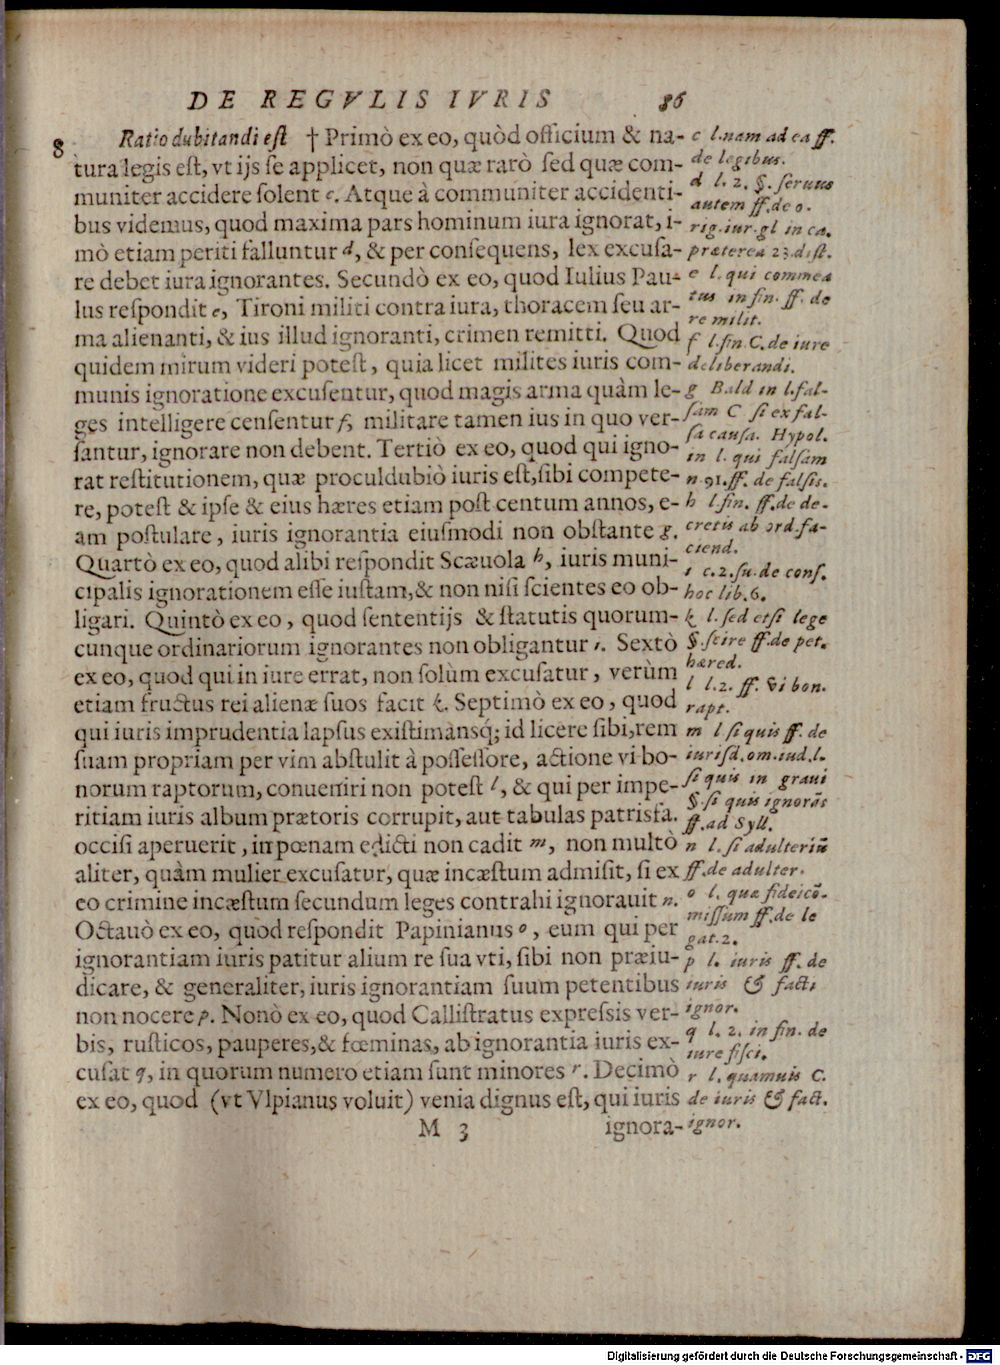 DE REGVLIS IVRIS 86
8 Ratio dubitandi est † Primò ex eo, quòd officium & na-
tura legis est, vt ijs se applicet, non quæ rarò sed quæ com-
muniter accidere solent c. Atque à communiter accidenti-
bus videmus, quod maxima pars hominum iura ignorat, i-
mò etiam periti falluntur d, & per consequens, lex excusa-
re debet iura ignorantes. Secundò ex eo, quod Iulius Pau-
lus respondit e, Tironi militi contra iura, thoracem seu ar-
ma alienanti, & ius illud ignoranti, crimen remitti. Quod
quidem mirum videri potest, quia licet milites iuris com-
munis ignoratione excusentur, quod magis arma quàm le-
ges intelligere censentur f, militare tamen ius in quo ver-
santur, ignorare non debent. Tertiò ex eo, quod qui igno-
rat restitutionem, quæ proculdubiò iuris est, sibi compete-
re, potest & ipse & eius hæres etiam post centum annos, e-
am postulare, iuris ignorantia eiusmodi non obstante g.
Quartò ex eo, quod alibi respondit Scæuola h, iuris muni-
cipalis ignorationem esse iustam, & non nisi scientes eo ob-
ligari. Quintò ex eo, quod sententijs & statutis quorum-
cunque ordinariorum ignorantes non obligantur i. Sextò
ex eo, quod qui in iure errat, non solùm excusatur, verùm
etiam fructus rei alienæ suos facit k. Septimò ex eo, quod
qui iuris imprudentia lapsus existimansq́; id licere sibi, rem
suam propriam per vim abstulit à possessore, actione vi bo-
norum raptorum, conueniri non potest l, & qui per impe-
ritiam iuris album prætoris corrupit, aut tabulas patrisfa.
occisi aperuerit, in pœnam edicti non cadit m, non multò
aliter, quàm mulier excusatur, quæ incæstum admisit, si ex
eo crimine incæstum secundum leges contrahi ignorauit n.
Octauò ex eo, quòd respondit Papinianus o, eum qui per
ignorantiam iuris patitur alium re sua vti, sibi non præiu-
dicare, & generaliter, iuris ignorantiam suum petentibus
non nocere p. Nonò ex eo, quod Callistratus expressis ver-
bis, rusticos, pauperes, & fœminas, ab ignorantia iuris ex-
cusat q, in quorum numero etiam sunt minores r. Decimò
ex eo, quod (vt Vlpianus voluit) venia dignus est, qui iuris
M 3 ignora-
c l. nam ad ea ff.
de legibus.
d l. 2. §. seruus
autem ff. de o-
rig. iur. gl in ca.
præterea 23. dist.
e l. qui commea
tus in fin. ff. de
re milit.
f l. fin. C. de iure
deliberandi.
g Bald in l. fal-
sam C si ex fal-
sa causa. Hypol.
in l. qui falsam
n. 91. ff. de falsis.
h l. fin. ff. de de-
cretis ab ord. fa-
ciend.
i c. 2. su. de cons.
hoc lib. 6.
k l. sed etsi lege
§. scire ff. de pet.
hæred.
l l. 2. ff. Vi bon.
rapt.
m l si quis ff. de
iurisd. om. iud. l.
si quis in graui
§. si quis ignorãs
ff. ad Syll.
n l. si adulteriũ
ff. de adulter.
o l. quæ fideicõ-
missum ff. de le
gat. 2.
p l. iuris ff. de
iuris & facti
ignor.
q l. 2. in fin. de
iure fisci.
r l. quamuis C.
de iuris & fact.
ignor.
Digitalisierung gefördert durch die Deutsche Forschungsgemeinschaft - DFG